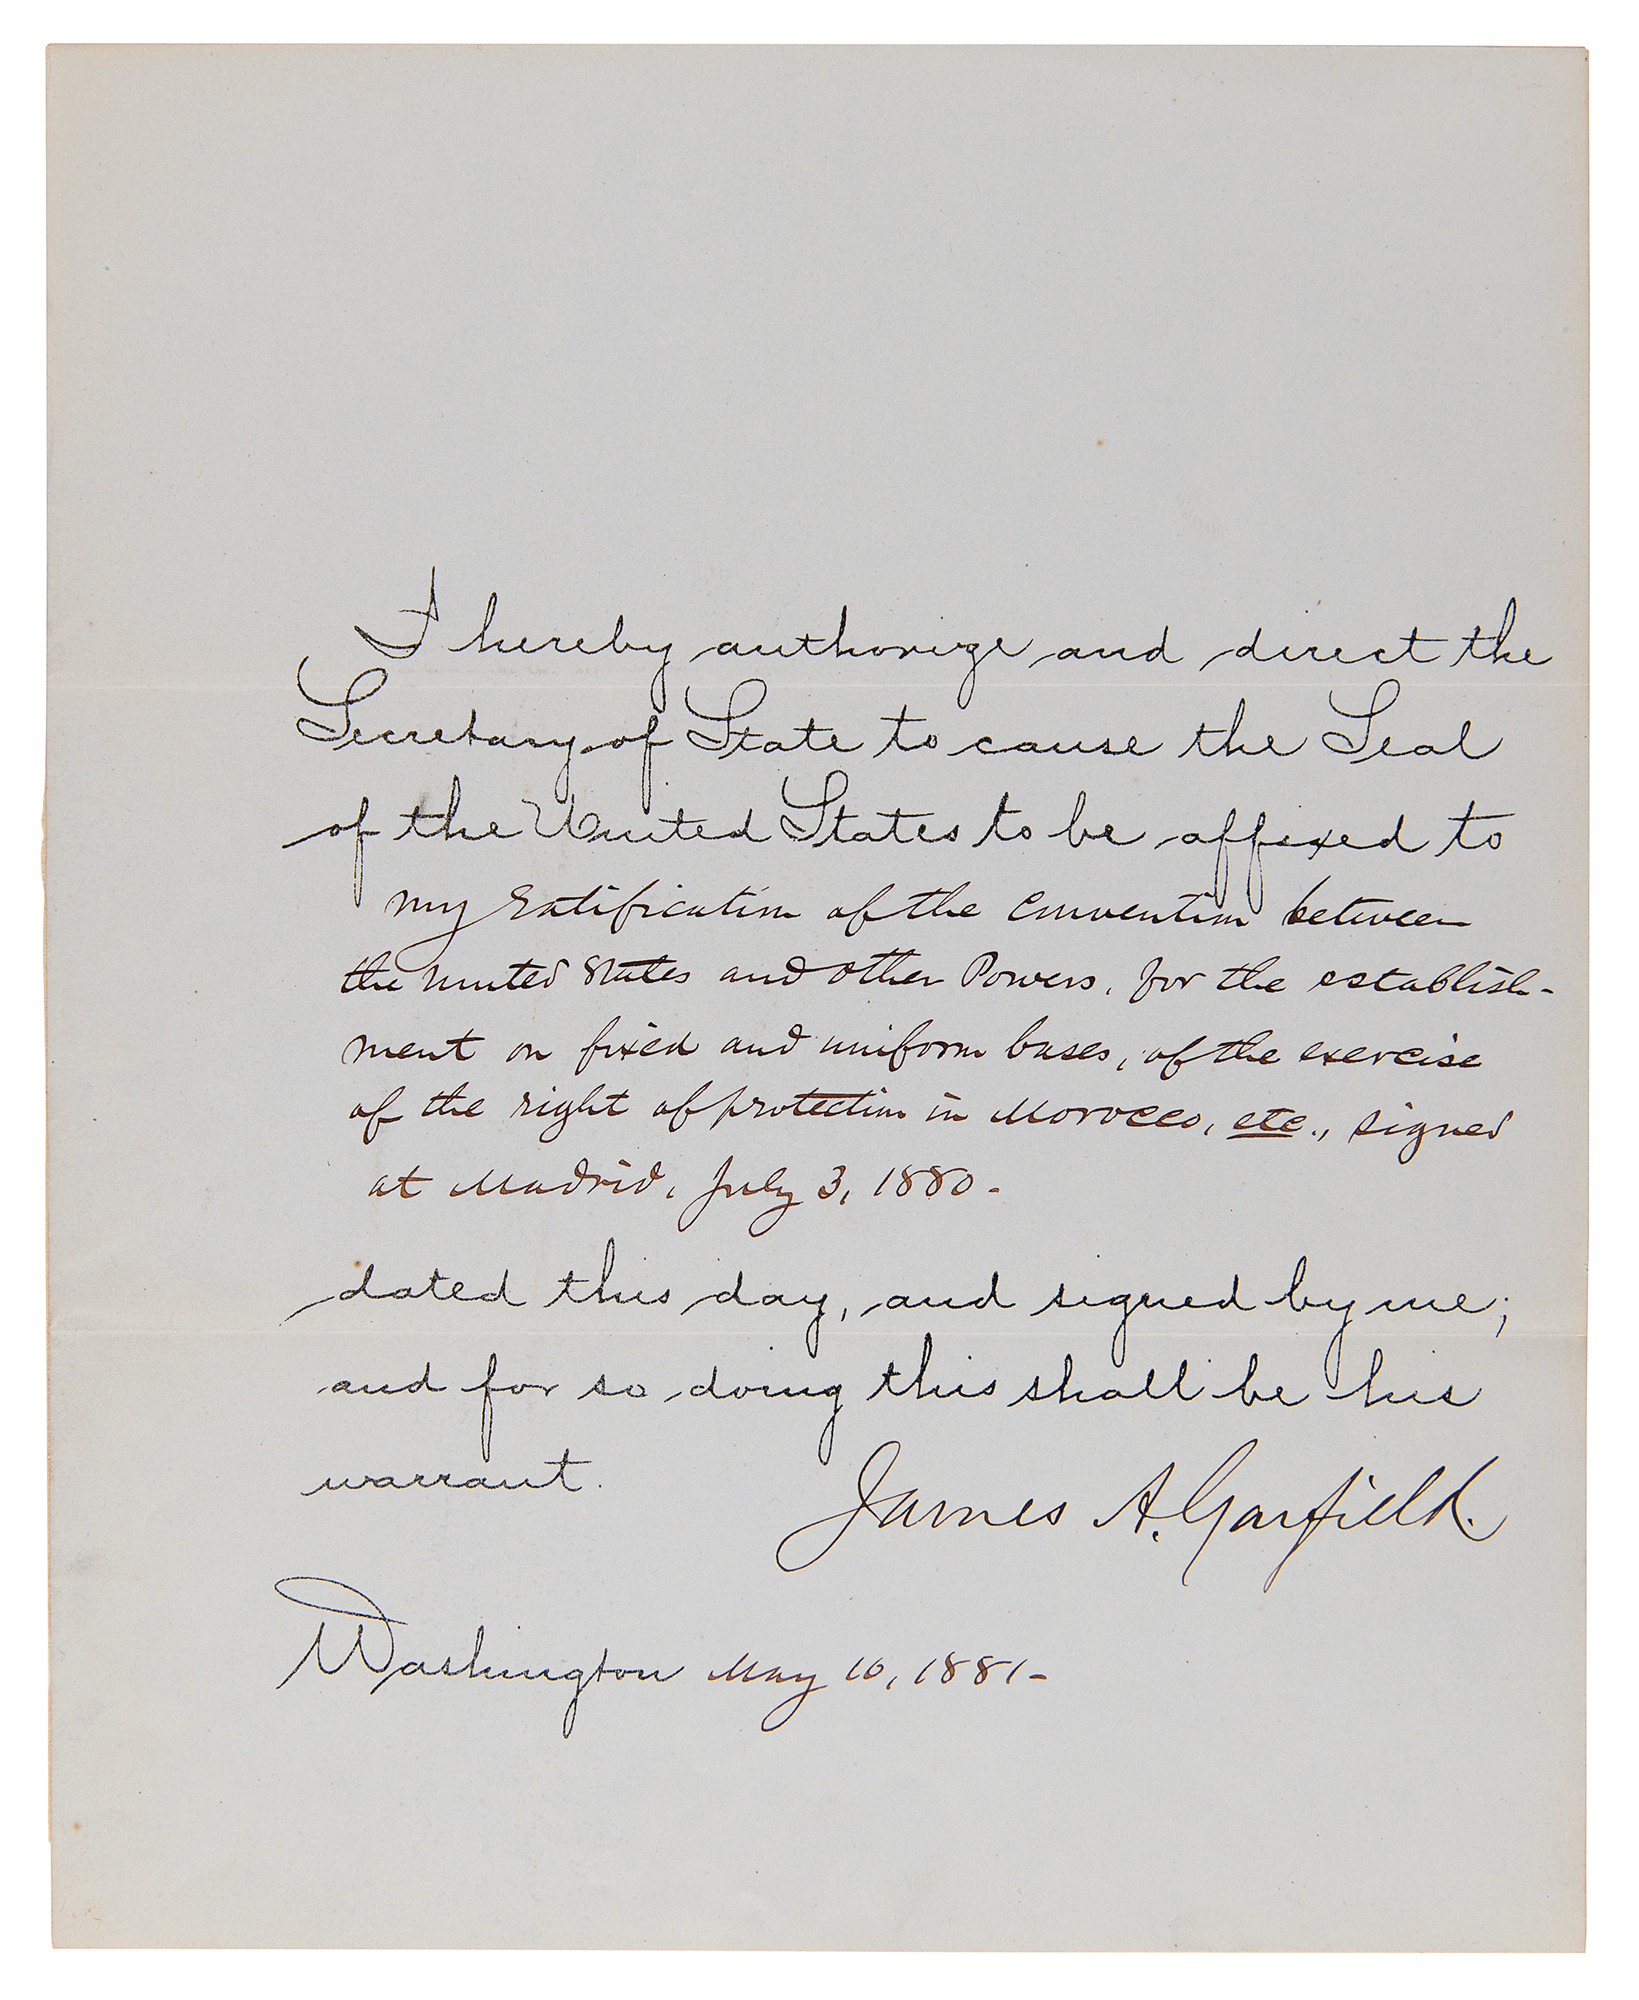 I hereby authorize and direct the
Secretary of State to cause the Seal
of the United States to be affixed to
my ratification of the Convention between
the United States and other Powers, for the establish-
ment on fixed and uniform bases, of the exercise
of the right of protection in Morocco, etc., signed
at Madrid, July 3, 1880-
dated this day, and signed by me;
and for so doing this shall be his
warrant.
James A. Garfield.
Washington May 10, 1881-